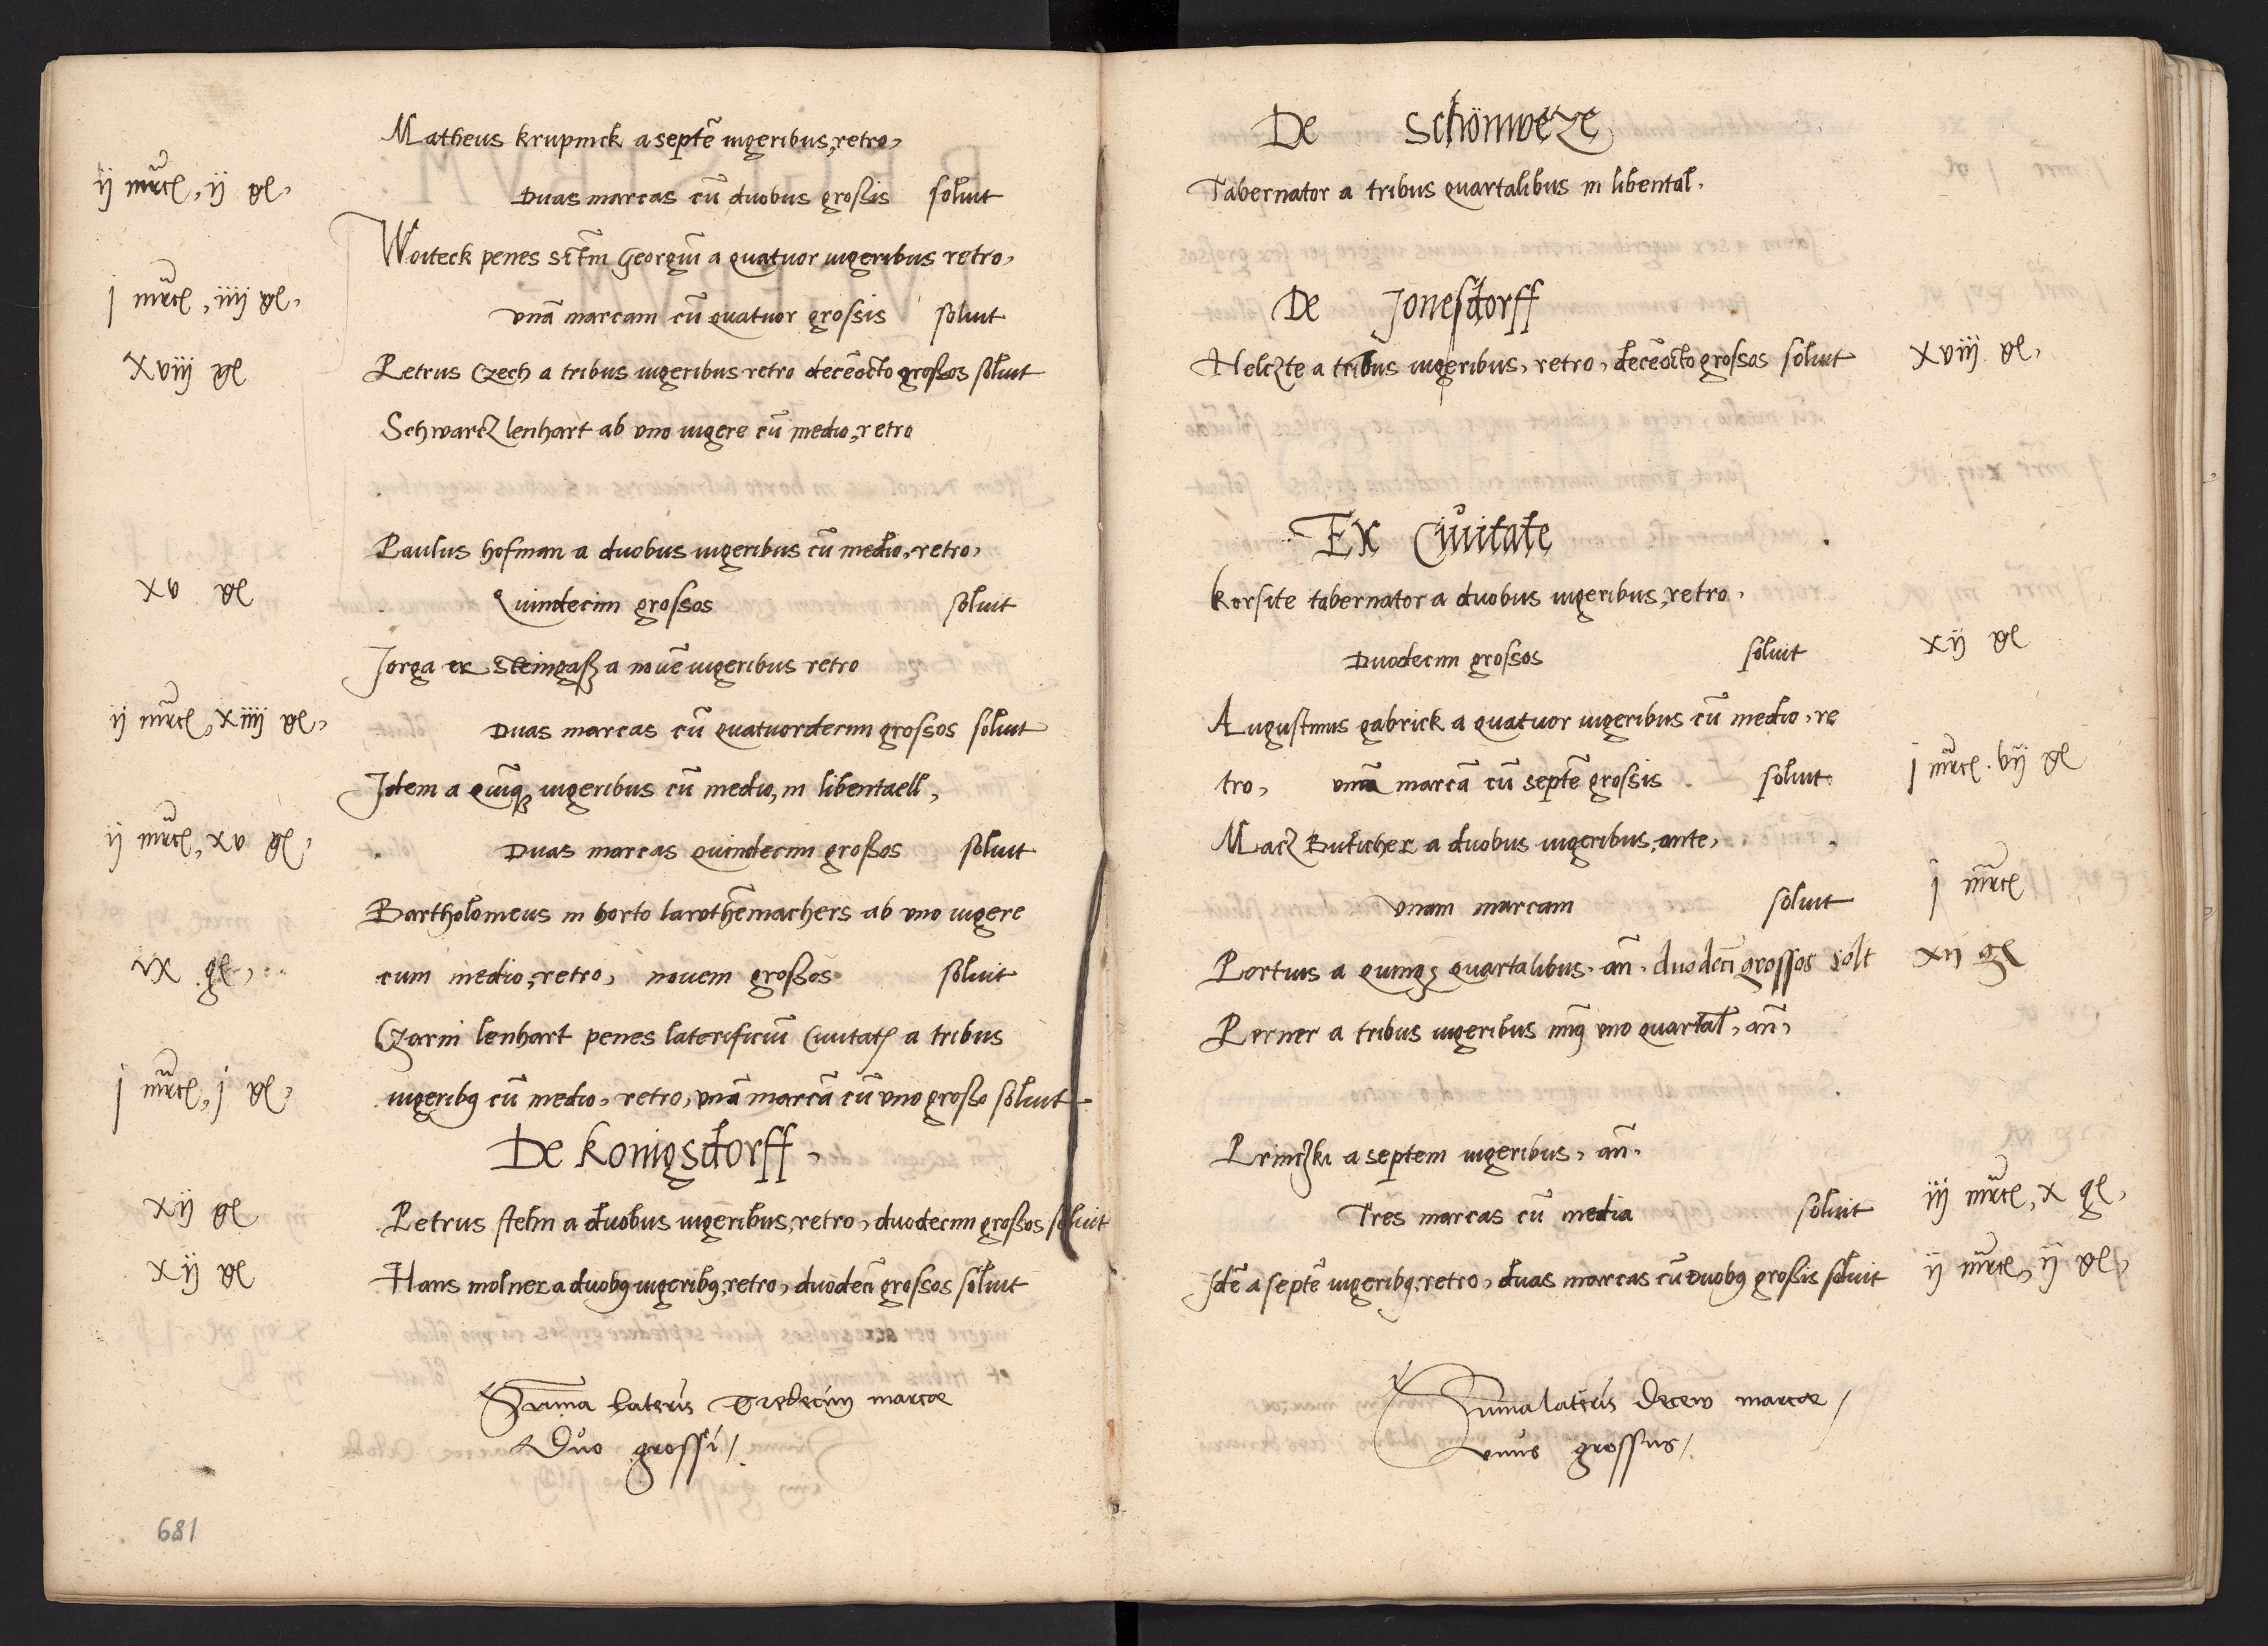 Matheus krupnick a septē iugeribus, retro,
ij mrc̄, ij gl, Duas marcas cū duobus grossis soluit
Woiteck penes sctm̄ Georgiū a quatuor iugeribus retro,
j mrc̄, iiij gl, vnā marcam cū quatuor grossis soluit
xviij gl Petrus Czech a tribus iugeribus retro decēocto grossos soluit
Schwarcz lenhart ab vno iugere cū medio, retro
Paulus hofman a duobus iugeribus cū medio, retro,
xv gl Quindecim grossos soluit
Jorga ex Steingaß a nouē iugeribus retro
ij mrc̄, xiiij gl, Duas marcas cū quatuordecim grossos soluit
Jdem a quīq iugeribus cū medio, in libentaell,
ij mrc̄, xv gl, Duas marcas quindecim grossos soluit
Bartholomeus in horto lawthēmachers ab vno iugere
ix gl, cum medio, retro, nouem grossos soluit
Czarni lenhart penes laterificiū Ciuitatꝭ a tribus
j mrc̄, j gl, iugeribꝰ cū medio, retro, vnā marcā cū vno grosso soluit
De Konigsdorff,
xij gl Petrus stelin a duobus iugeribus, retro, duodecim grossos soluit
xij gl Hans molner a duobꝰ iugeribꝰ, retro, duodecī grossos soluit
Suma Lateris Tredecim marcae
Duo grossi/.
681
De Schönweze
Tabernator a tribus quartalibus in libental.
De Jonesdorff
Helczte a tribus iugeribus, retro, decēocto grossos soluit xviij gl,
Ex Ciuitate
Korsite tabernator a duobus iugeribus, retro,
Duodecim grossos soluit xij gl
Augustinus gabrick a quatuor iugeribus cū medio, re
tro, vnā marcā cū septē grossis soluit j mrc̄. vij gl
Macz Buticher a duobus iugeribus, ante,
vnam marcam soluit j mrc̄
Portuis a quinqꝫ quartalibus. an̄. duodecī grossos solt xij gl
Perner a tribus iugeribus iūg vno quartal, an̄,
Princzki a septem iugeribus, an̄.
Tres marcas cū media soluit iij mrc̄, x gl,
Jdē a septē iugeribꝰ, retro, duas marcas cū duobꝰ grossis soluit ij mrc̄, ij gl,
Suma lateris decem marcae/
vnus grossus/.